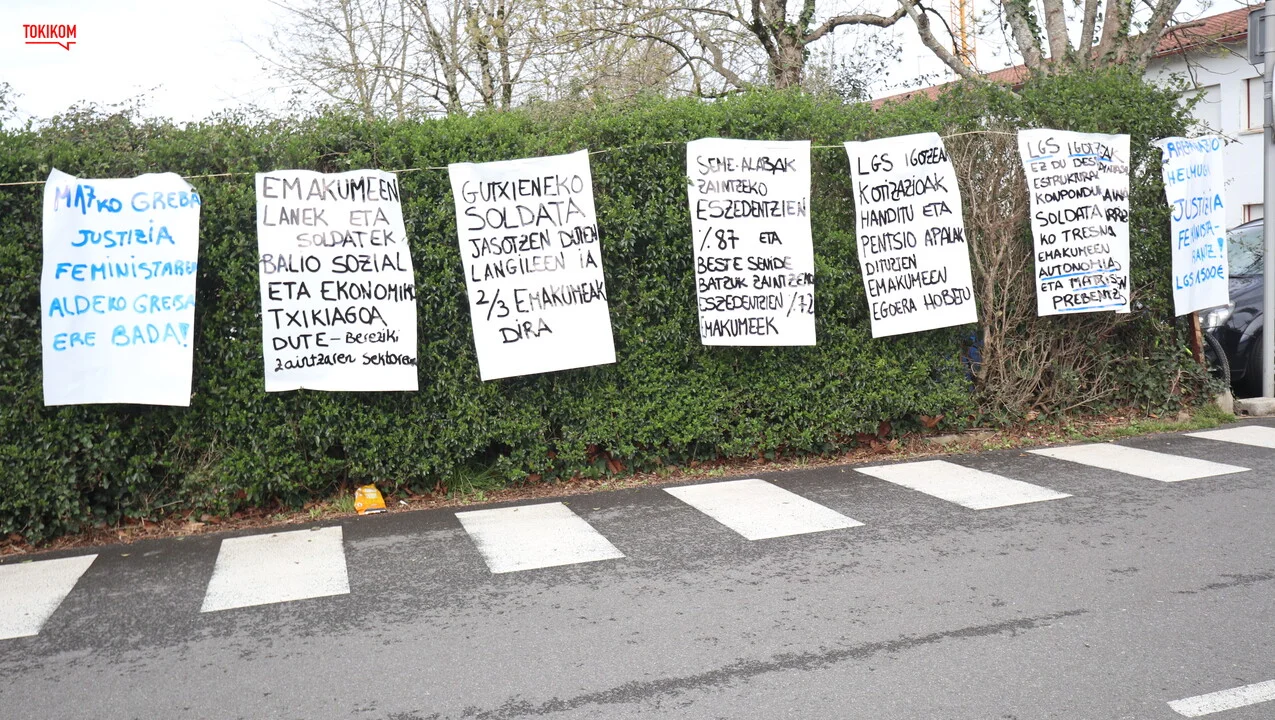 TOKIKOM
MA7KO GREBA
JUSTIZIA
FEMINISTAREN
ALDEKO GREBA
ERE BADA!
EMAKUMEEN
LANEK ETA
SOLDATEK
BALIO SOZIAL
ETA EKONOMIKO
TXIKIAGOA
DUTE - BEREZIKI
zaintzaren sektorean
GUTXIENEKO
SOLDATA
JASOTZEN DUTEN
LANGILEEN IA
2/3 EMAKUMEAK
DIRA
SEME-ALABAK
ZAINTZEKO
ESZEDENTZIEN
%87 ETA
BESTE SENIDE
BATZUK ZAINTZEKO
ESZEDENTZIEN %72
EMAKUMEEK
LGS IGOTZEAK
KOTIZAZIOAK
HANDITU ETA
PENTSIO APALAK
DITUZTEN
EMAKUMEEN
EGOERA HOBETU
LGS IGOTZEAK
EZ DU
ESTRUKTURAL
KONPONDU
SOLDATA
KO TRESNA
EMAKUMEEN
AUTONOMIA
ETA
HELMUGA
JUSTIZIA
FEMINISTA-
RANTZ!
LGS 1500€